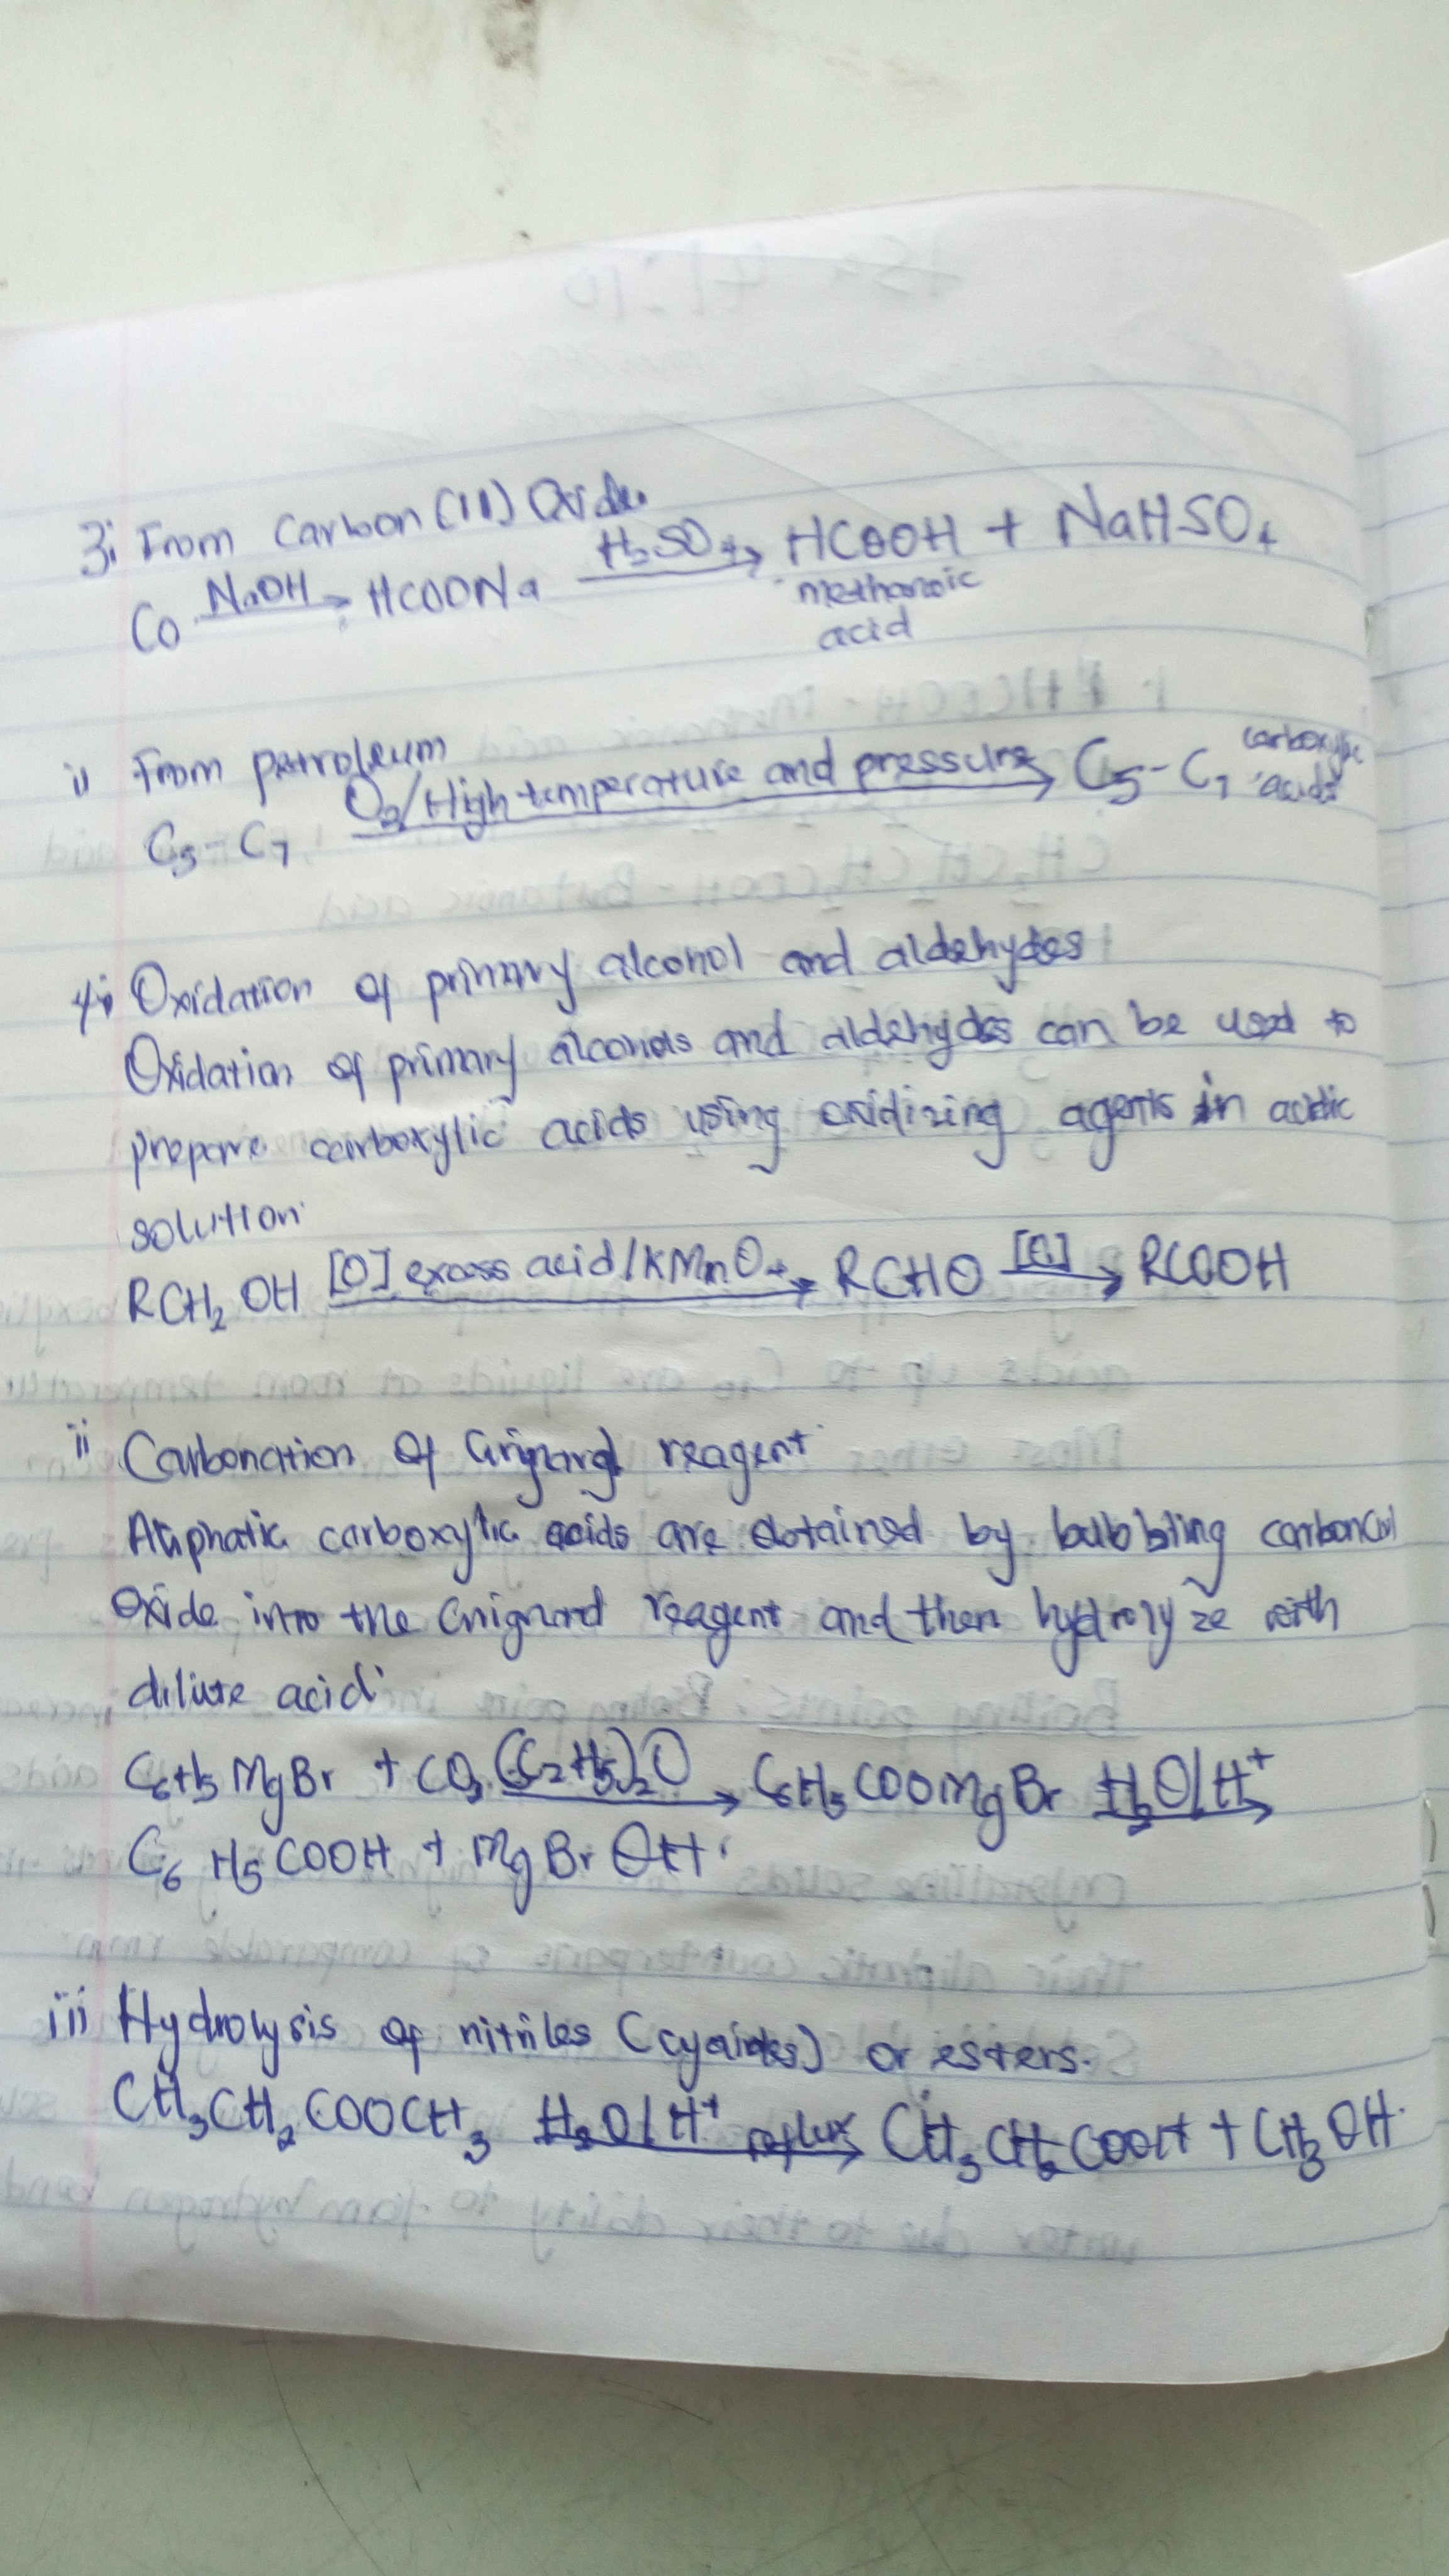 3i From Carbon (II) Oxide
CO NaOH→ HCOONa H₂SO₄→ HCOOH + NaHSO₄
methanoic
acid
ii From petroleum
C₅-C₇ O₂/High temperature and pressure→ C₅-C₇ carboxylic
acids
4i Oxidation of primary alcohol and aldehydes
Oxidation of primary alcohols and aldehydes can be used to
prepare carboxylic acids using oxidizing agents in acidic
solution
RCH₂OH [O] excess acid/KMnO₄→ RCHO [O]→ RCOOH
ii Carbonation of Grignard reagent
Aliphatic carboxylic acids are obtained by bubbling carbon(iv)
Oxide into the Grignard reagent and then hydrolyze with
dilute acid
C₆H₅MgBr + CO₂ (C₂H₅)₂O→ C₆H₅COOMgBr H₂O/H⁺→
C₆H₅COOH + MgBrOH.
iii Hydrolysis of nitriles (cyanides) or esters.
CH₃CH₂COOCH₃ H₂O/H⁺ reflux→ CH₃CH₂COOH + CH₃OH.